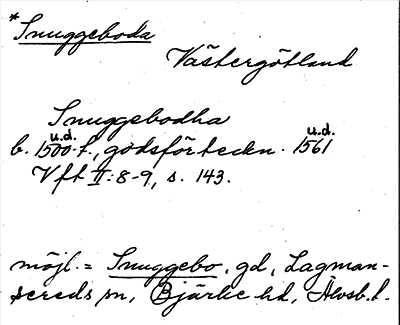 *Snuggeboda
Västergötland
Snuggebodha
b. 1500-t., godsförteckn. 1561
u.d. u.d.
Vft II:8-9, s. 143.
möjl. = Snuggebo, gd, Lagman-
sereds sn, Bjärke hd, Älvsb. l.